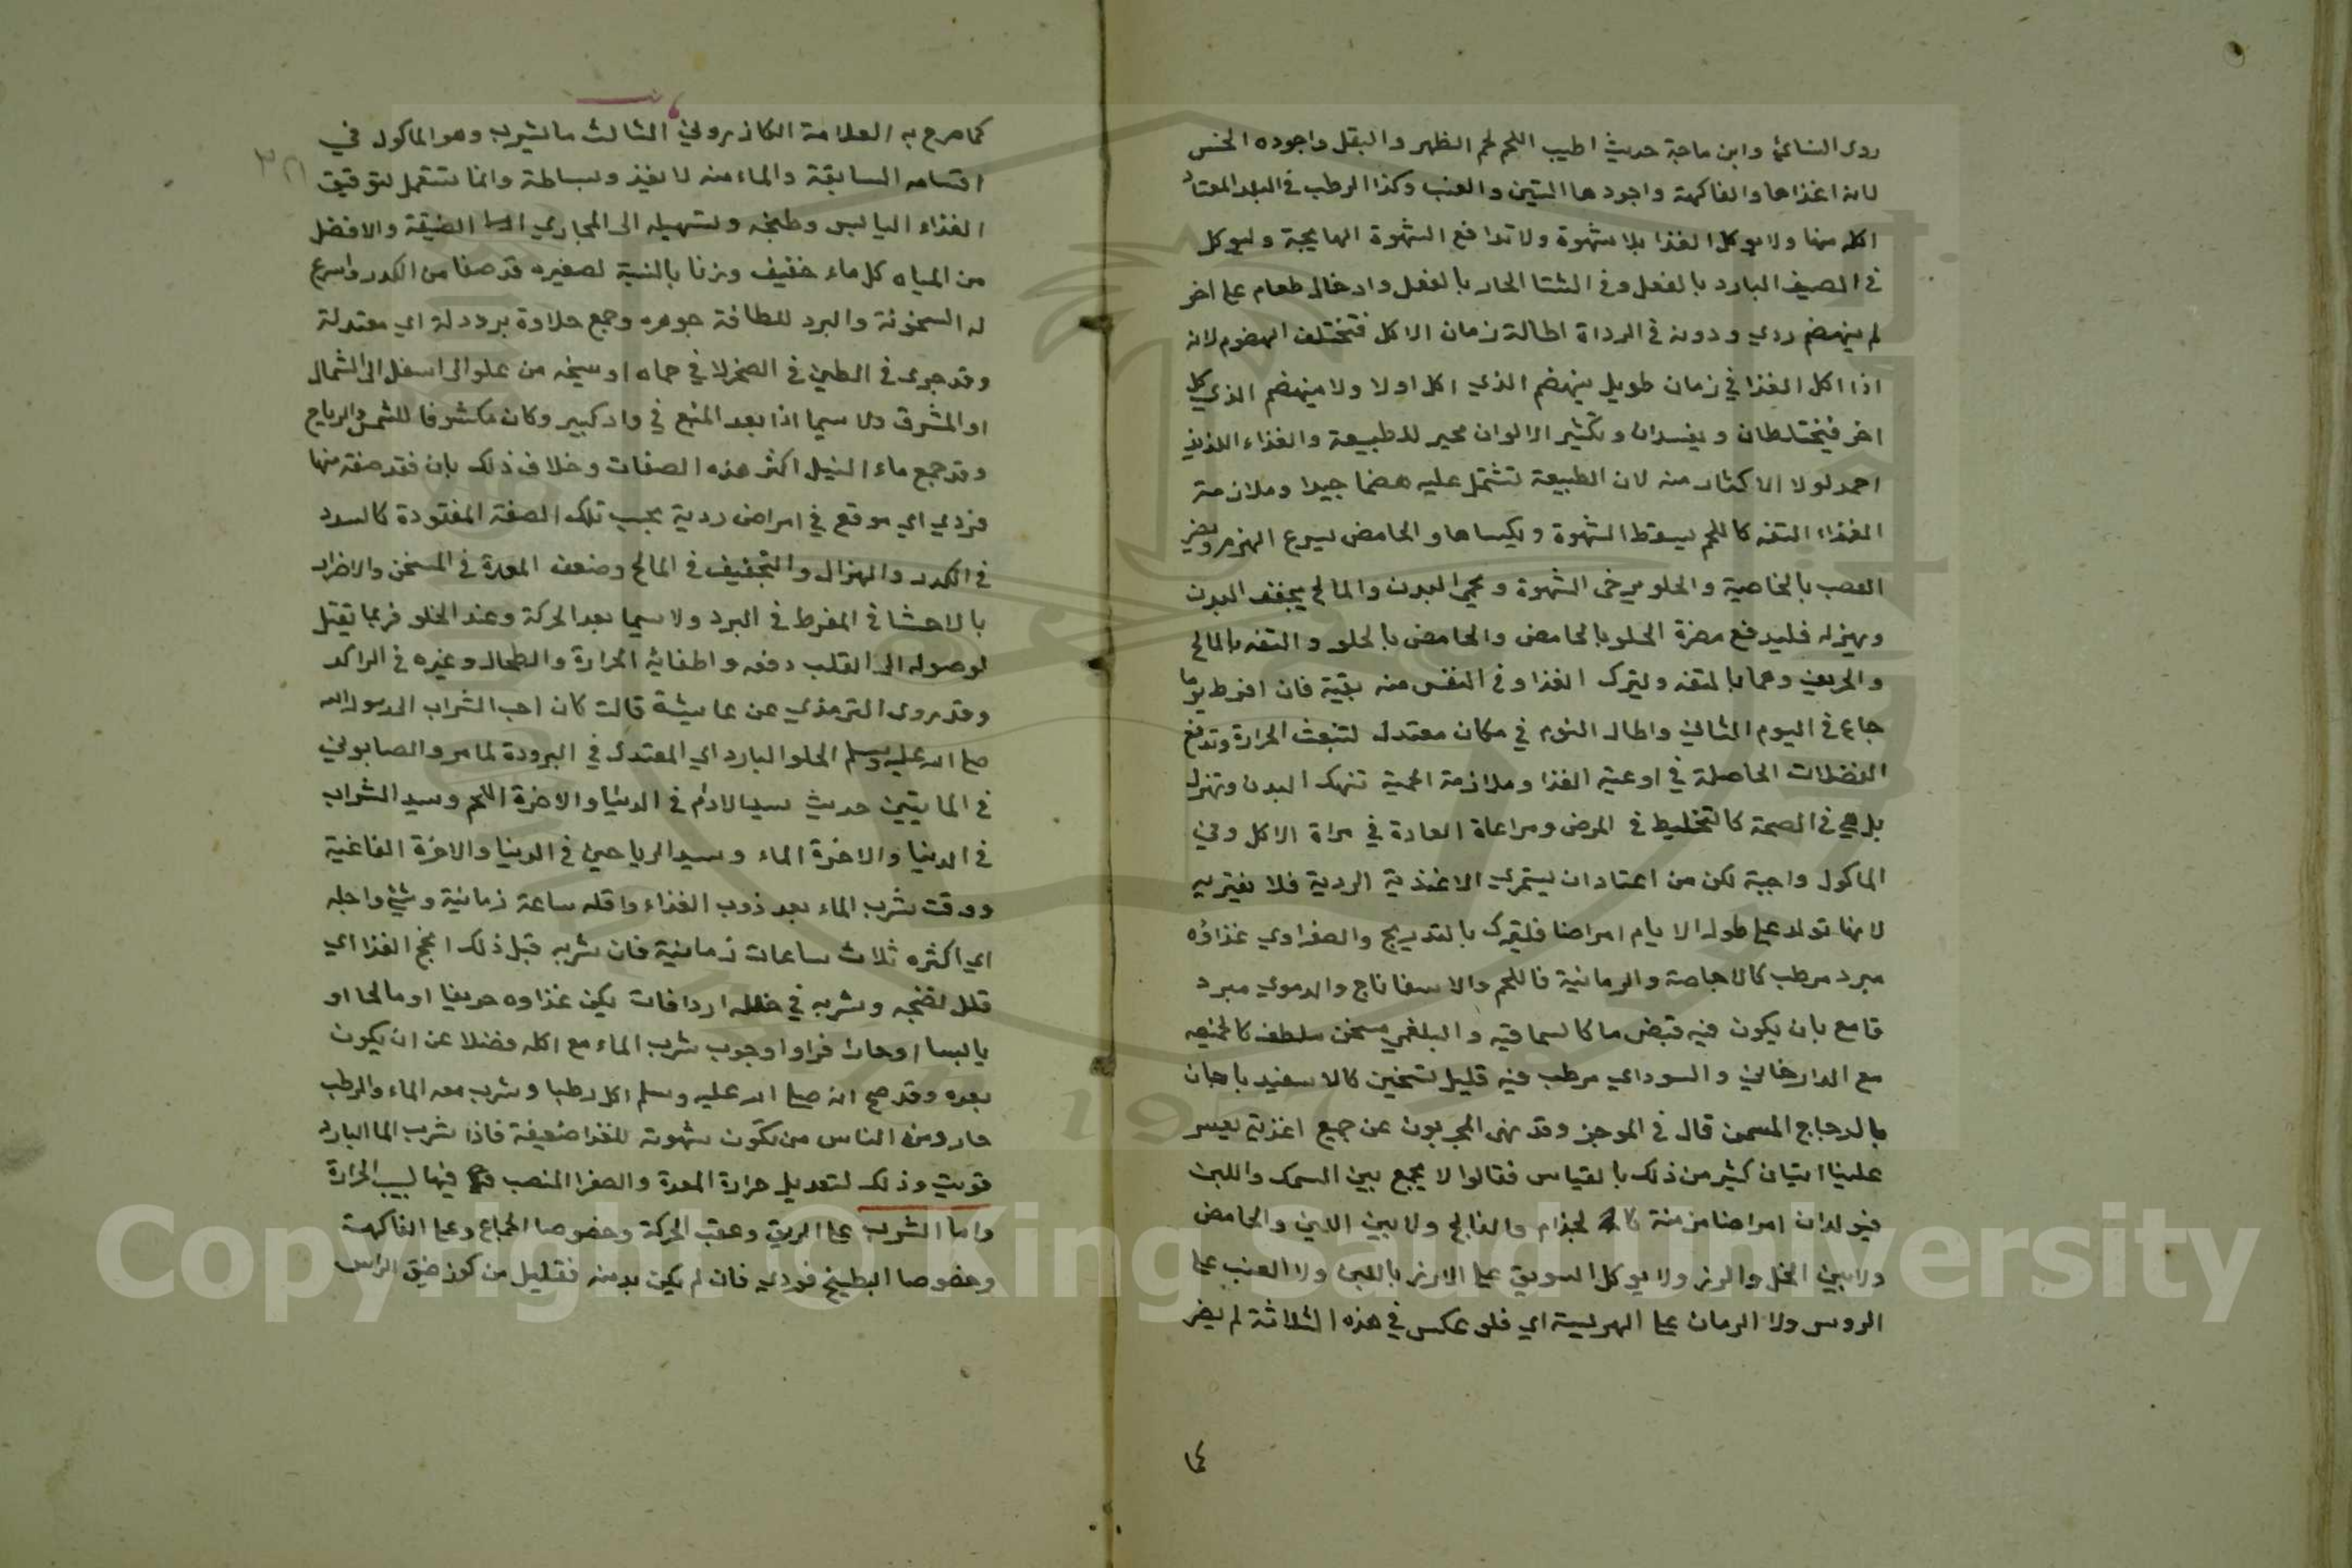 روى النسائي وابن ماجة حديث اطيب اللحم لحم الظهر والبقل واجوده الخس
لانه اغذاها والفاكهة واجودها التين والعنب وكذا الرطب في البلد المعتاد
اكله منها ولا يوكل الغذا بلا شهوة ولا تدافع الشهوة الهايجة وليوكل
في الصيف البارد بالفعل وفي الشتا الحار بالفعل وادخال طعام على اخر
لم ينهضم ردي ودونه في الرداة اطالة زمان الاكل فتختلف الهضوم لانه
اذا اكل الغذا في زمان طويل ينهضم الذي اكل اولا ولا ينهضم الذي اكل
اخر فيختلطان ويفسدان وتكثير الالوان محير للطبيعة والغذاء اللذيذ
احمد لولا الاكثار منه لان الطبيعة تشتمل عليه هضما جيدا وملازمة
الغذاء التفه كاللحم يسقط الشهوة ويكسلها والحامض يسرع الهرم ويضر
العصب بالخاصية والحلو يرخى الشهوة ويحمي البدن والمالح يجفف البدن
ويهزله فليدفع مضرة الحلو بالحامض والحامض بالحلو والتفه بالمالح
والحريف وهما بالتفه وليترك الغذا وفي النفس منه بقية فان افرط يوما
جاع في اليوم الثاني واطال النوم في مكان معتدل لتنبعث الحرارة وتدفع
الفضلات الحاصلة في اوعية الغذا وملازمة الحمية تنهك البدن وتهزله
بل هي في الصحة كالتخليط في المرض ومراعاة العادة في مراة الاكل وفي
الماكول واجبة لكن من اعتاد ان يستمري الاغذية الردية فلا يغتر به
لانها تولد على طول الايام امراضا فليترك بالتدريج والصفراوي غذاؤه
مبرد مرطب كالاجاصة والرمانية فاللحم والاسفاناج والدموي مبرد
قامع بان يكون فيه قبض ما كالسماقيه والبلغمي مسخن ملطف
مع الدارخاني والسوداي مرطب فيه قليل تسخين كالاسفيدباجات
بالدجاج المسمن قال في الموجز وقد نهى المجربون عن جمع اغذية يعسر
علينا اتيان كثير من ذلك بالقياس فقالوا لا يجمع بين السمك واللبن
فيولدان امراضا مزمنة كالجذام والفالج ولا بين اللبن والحامض
ولا بين الخل والرز ولا يوكل السويق على الارز باللبن ولا العنب على
الروس ولا الرمان على الهريسة اي فلو عكس في هذه الثلاثة لم يضر
كما
كما صرح به العلامة الكازروني الثالث ما يشرب وهو الماكول في
اقسامه السابقة والماء منه لا يغذ ولبساطة وانما يستعمل لترقيق
الغذاء اليابس وطبخه وتسهيله الى المجاري الضيقة والافضل
من المياه كل ماء خفيف وزنا بالنسبة لصغيره قد صفا من الكدر واسرع
له السخونة والبرد للطافة جوهره وجمع حلاوة برودة اي معتدلة
وقد جرى في الطين في الصخر لا في حماه او سبخه من علو الى اسفل الى الشمال
او المشرق ولا سيما اذا بعد المنبع في واد كبير وكان مكشوفا للشمس والرياح
وقد جمع ماء النيل اكثر هذه الصفات وخلاف ذلك بان فقد صفة منها
فردي اي موقع في امراض ردية بحسب تلك الصفة المفقودة كالسدد
في الكدر والهزال والتجفيف في المالح وضعف المعدة في المسخن والاضرار
بالاحشا في المفرط في البرد ولا سيما بعد الحركة وعند الخلو فربما يقتل
لوصوله الى القلب دفعه واطفائه الحرارة والطحال وغيره في الراكد
وقد روى الترمذي عن عايشة قالت كان احب الشراب الى رسول الله
صلى الله عليه وسلم الحلو البارد اي المعتدل في البرودة لما مر والصابوني
في المايتين حديث سيد الادام في الدنيا والاخرة اللحم وسيد الشراب
في الدنيا والاخرة الماء وسيد الرياحين في الدنيا والاخرة الفاغية
ووقت شرب الماء بعد ذوب الغذاء واقله ساعة زمانية وشئ واجله
اي اكثره ثلاث ساعات زمانية فان شربه قبل ذلك افج الغذا اي
قلل نضجه وشربه في خلله اردا فان يكن غذاوه حريفا او مالحا او
يابسا او حارا فراوا وجوب شرب الماء مع اكله فضلا عن ان يكون
بعده وقد صح انه صلى الله عليه وسلم اكل رطبا وشرب معه الماء والرطب
حار ومن الناس من تكون شهوته للغذا ضعيفة فاذا شرب الما البارد
قويت وذلك لتعديل حرارة المعدة والصفرا المنصب فيها لسبب الحرارة
واما الشرب على الريق وعقب الحركة وخصوصا الجماع وعلى الفاكهة
وخصوصا البطيخ فردي فان لم يكن بد منه فقليل من كوز ضيق الراس
Copyright © King Saud University
1957